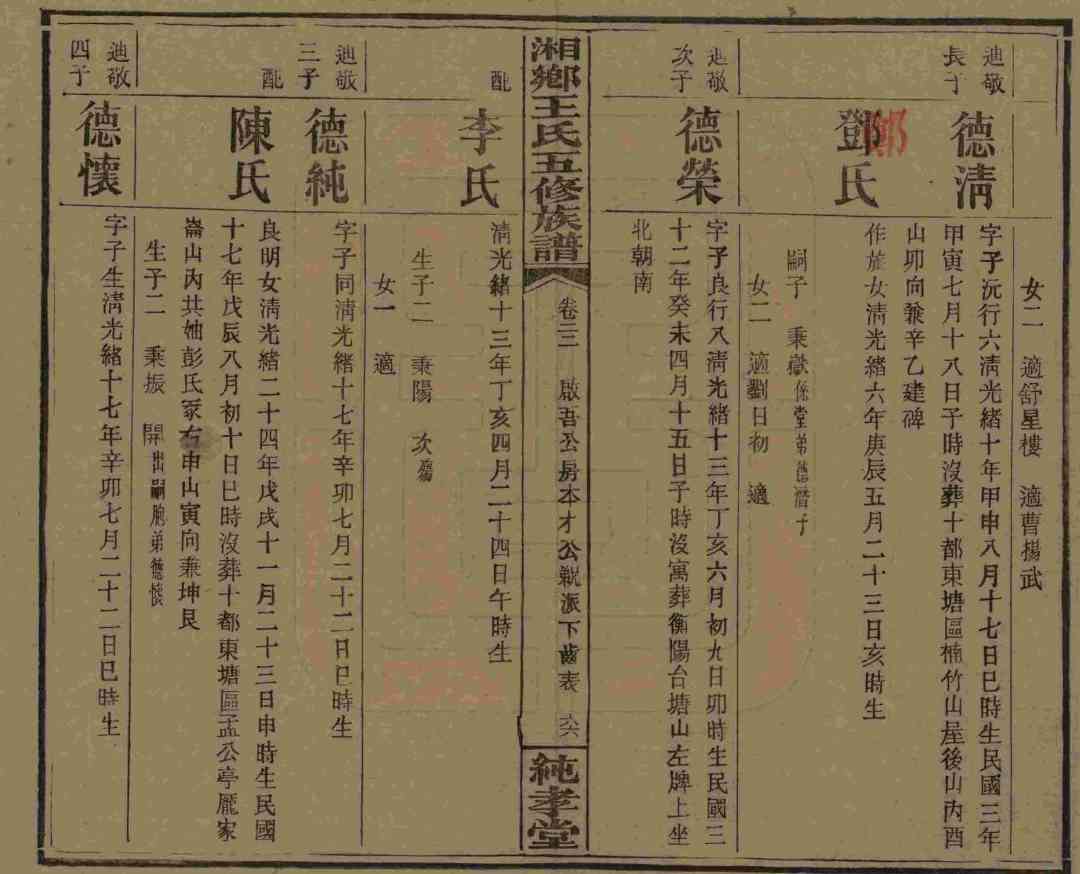 女二 適舒星樓 適曹揚武
迪敬
長子
德淸
字子沅行六淸光緖十年甲申八月十七日巳時生民國三年
甲寅七月十八日子時沒葬十都東塘區楠竹山屋後山內酉
山卯向兼辛乙建碑
鄧氏
鄭
作旌女淸光緖六年庚辰五月二十三日亥時生
嗣子 秉嶽係堂弟德濳子
女二 適劉日初 適
迪敬
次子
德榮
字子良行八淸光緖十三年丁亥六月初九日卯時生民國三
十二年癸未四月十五日子時沒寓葬衡陽台塘山左牌上坐
北朝南
湘鄉王氏五修族譜
卷三三 啟吾公房本才公派下齒表
純孝堂
配
李氏
淸光緖十三年丁亥四月二十四日午時生
生子二 秉陽 次殤
女一 適
迪敬
三子
德純
字子同淸光緖十七年辛卯七月二十二日巳時生
配
陳氏
良明女淸光緖二十四年戊戌十一月二十三日申時生民國
十七年戊辰八月初十日巳時沒葬十都東塘區孟公亭龐家
崙山內共妯彭氏冢右申山寅向兼坤艮
生子二 秉振 開出嗣胞弟德懷
迪敬
四子
德懷
字子生淸光緖十七年辛卯七月二十二日巳時生